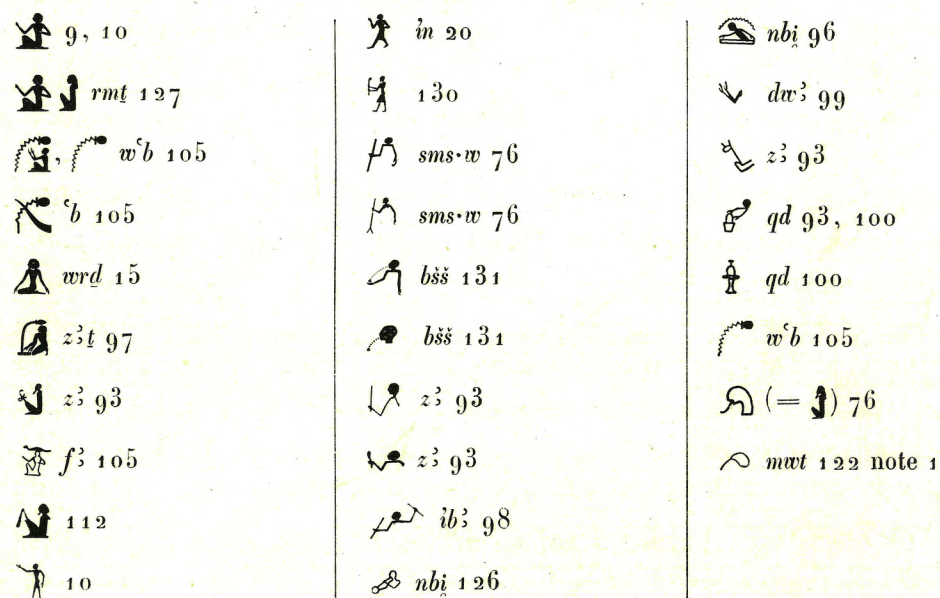 9, 10
rmṯ 127
, wꜥb 105
ꜥb 105
wrḏ 15
zꜣṯ 97
zꜣ 93
fꜣ 105
112
10
ỉn 20
130
sms·w 76
sms·w 76
bšš 131
bšš 131
zꜣ 93
zꜣ 93
ỉbꜣ 98
nbỉ̯ 126
nbỉ̯ 96
dwꜣ 99
zꜣ 93
qd 93, 100
qd 100
wꜥb 105
(= ) 76
mwt 122 note 1